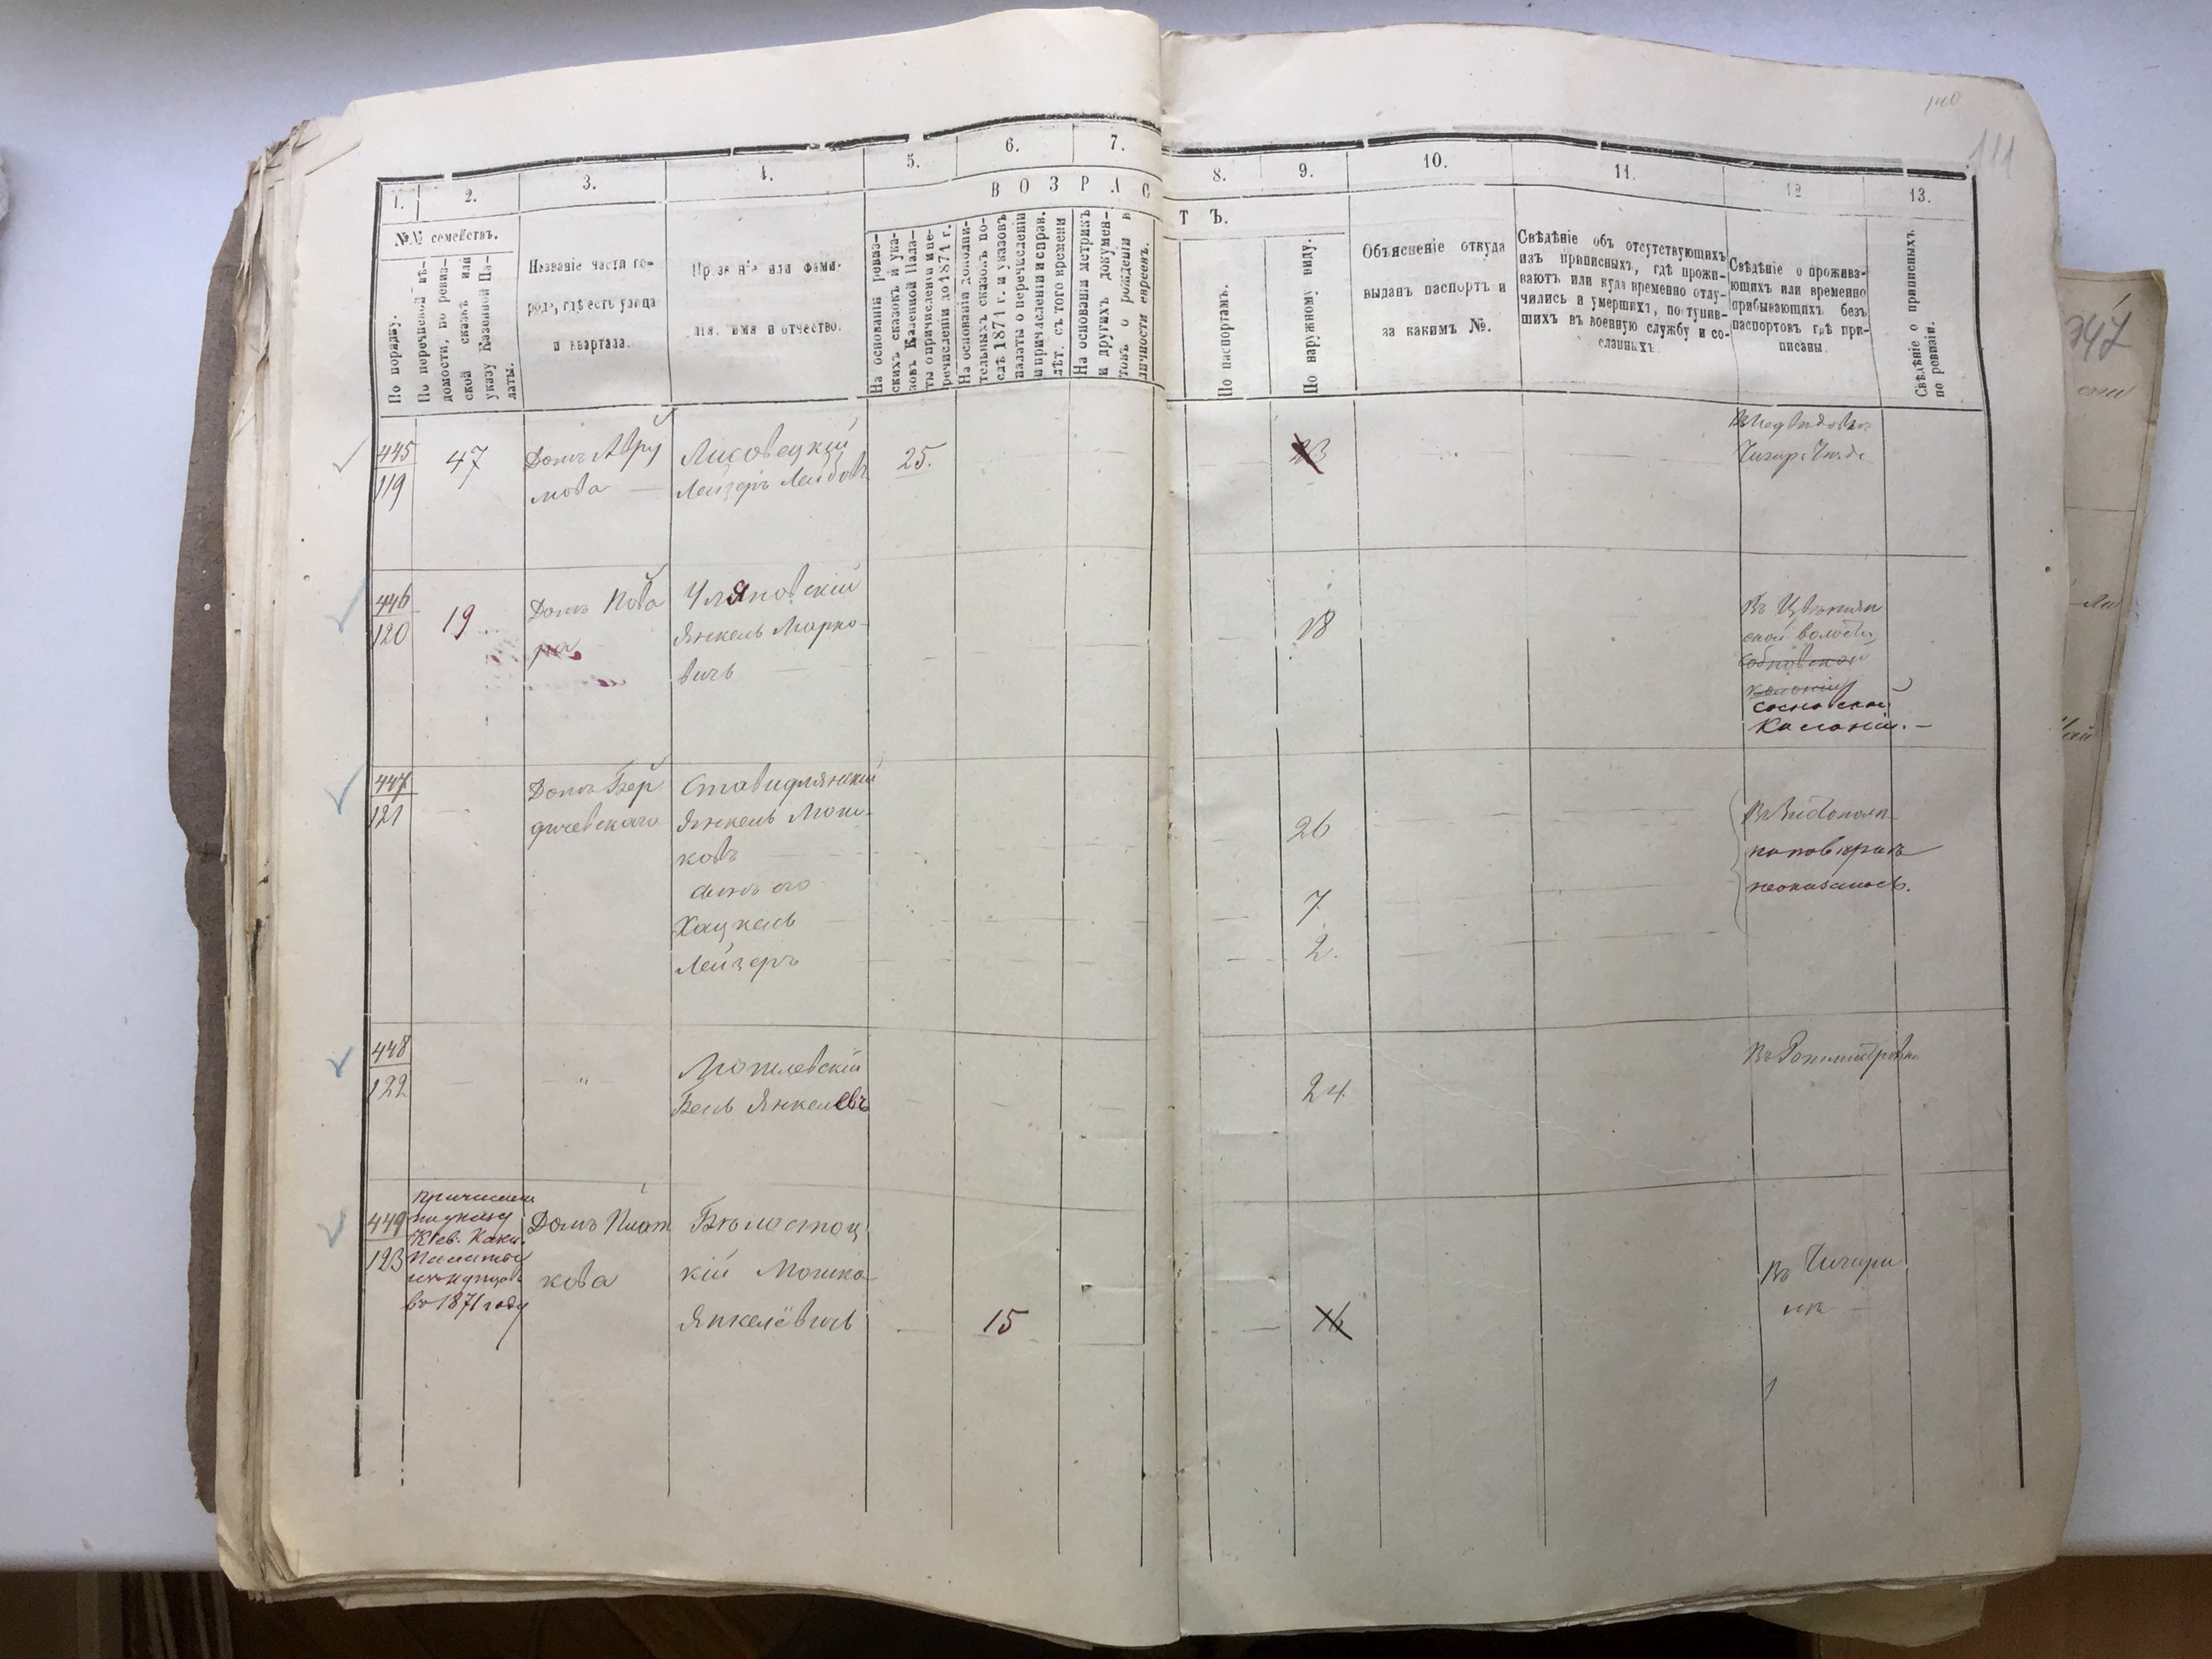 140
111
1.
2.
3.
4.
5.
6.
7.
8.
9.
10.
11.
12
13.
ВОЗРАС
ТЪ.
№№ семействъ.
По порядку.
По перечневой вѣ-
домости, по ревиз-
ской сказкѣ или
указу Казенной Па-
латы.
Названіе части го-
рода, гдѣ есть улица
и квартала.
Прозваніе или фами-
лія, имя и отчество.
На основаніи ревиз-
скихъ сказокъ и ука-
зовъ Казенной Пала-
ты о причисленіи и пе-
речисленіи до 1871 г.
На основаніи дополни-
тельныхъ сказокъ по-
слѣ 1871 г. и указовъ
палаты о перечисленіи
и причисленіи и справ.
лѣт. съ того времени
На основаніи метрикъ
и другихъ докумен-
товъ о рожденіи и
личности евреевъ.
По паспортамъ.
По наружному виду.
Объясненіе откуда
выданъ паспортъ и
за какимъ №.
Свѣдѣніе объ отсутствующихъ
изъ приписныхъ, гдѣ прожи-
ваютъ или куда временно отлу-
чились и умершихъ, поступив-
шихъ въ военную службу и со-
сланныхъ.
Свѣдѣніе о прожива-
ющихъ или временно
прибывающихъ безъ
паспортовъ гдѣ при-
писаны.
Свѣдѣніе о приписныхъ
по ревизіи.
445
119
47
Домъ Авру
мова
Лисовецкій
Лейзеръ Лейбовъ
25.
23
446
120
19
Домъ Пова
ра
Уляновскій
Янкель Марко-
вичъ
18
ской волости,
колоніи
сосновской
Калоніи.
447
121
Домъ Бер
дичевскаго
Ставидлянскій
Янкель Мош-
ковъ
сынъ его
Хацкель
Лейзеръ
26
7
2.
неоказалось.
448
122
"
Могилевскій
Бель Янкелевъ
24.
449
123
причислен
по указу
Кіев. Казен.
Палаты
изъ купцовъ
въ 1871 году
Домъ Пият
кова
Бѣлостоц
кій Мошко
Янкелёвичъ
15
16
Въ Чигири
нѣ
347